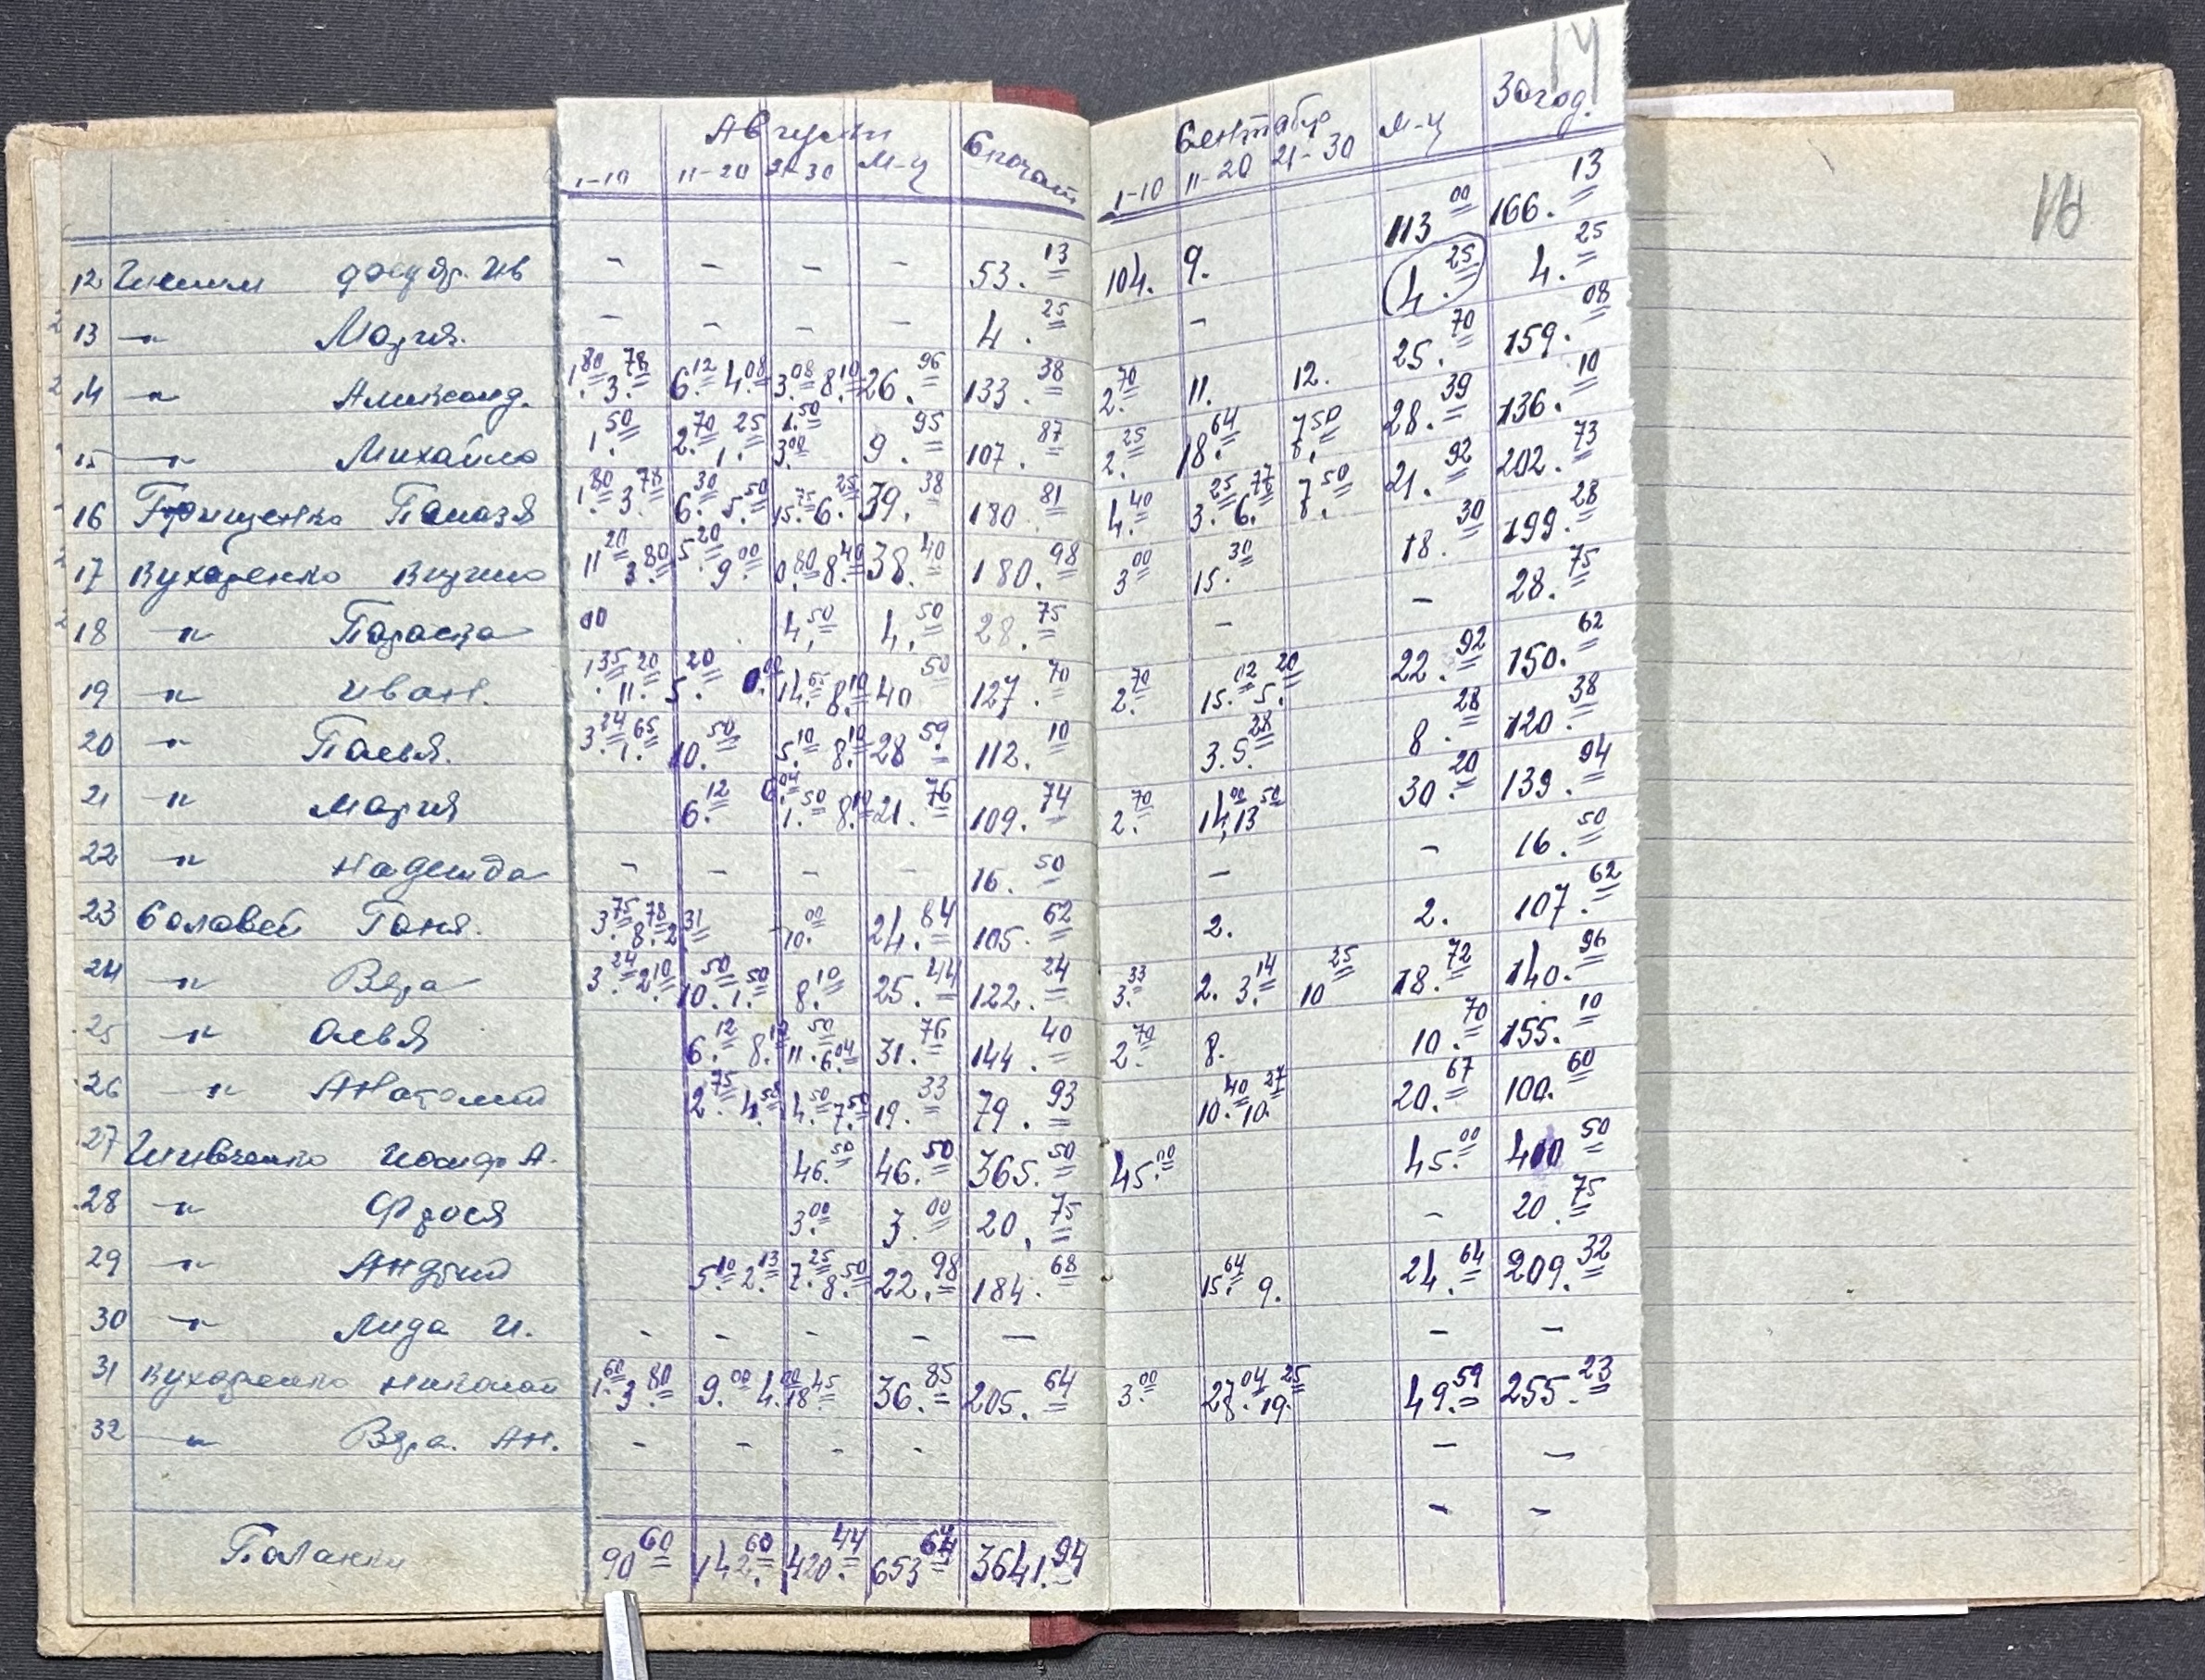 14
Август Спочат. Сентябр М-ц За год.
1-10 11-20 21-30 М-ц 1-10 11-20 21-30
12 – – – – 53.13 104. 9. 113.00 166.13
13 –"– Мария. – – – – 4.25 – 4.25 4.25
14 –"– Александ. 1.80 3.78 6.12 4.08 3.08 8.10 26.96 133.38 2.70 11. 12. 25.70 159.08
15 –"– Михайло 1.50 2.70 1.25 1.50 3.00 9.95 107.87 2.25 18.64 7.50 28.39 136.10
16 Грищенко 1.80 3.78 6.30 5.50 15.75 6.25 39.38 180.81 4.40 3.25 6.77 7.50 21.92 202.73
17 Кухаренко 11.20 3.80 5.20 9.00 0.80 8.40 38.40 180.98 3.00 15.30 18.30 199.28
18 –"– Параска 4.50 4.50 28.75 – – 28.75
19 –"– Иван. 1.35 11.20 5.20 14.65 8.10 40.50 127.70 2.70 15.02 5.20 22.92 150.62
20 –"– 3.24 1.65 10.50 5.10 8.10 28.59 112.10 3. 5.28 8.28 120.38
21 –"– Мария 6.12 6.04 1.50 8.10 21.76 109.74 2.70 14.00 13.50 30.20 139.94
22 –"– Надежда – – – – 16.50 – – 16.50
23 Соловей Ганя. 3.75 8.78 2.31 10.00 24.84 105.62 2. 2. 107.62
24 –"– Вера 3.24 2.10 10.50 1.50 8.10 25.44 122.24 3.33 2. 3.14 10.25 18.72 140.96
25 –"– 6.12 8.10 11.50 6.04 31.76 144.40 2.70 8. 10.70 155.10
26 –"– Анатолий 2.75 4.58 4.50 7.50 19.33 79.93 10.40 10.27 20.67 100.60
27 Шивченко Иосиф А. 46.50 46.50 365.50 45.00 45.00 410.50
28 –"– Фрося 3.00 3.00 20.75 – 20.75
29 –"– Андрий 5.10 2.13 7.25 8.50 22.98 184.68 15.64 9. 24.64 209.32
30 –"– Лида И. – – – – — – –
31 Кухаренко Николай 1.60 3.80 9.00 4.00 18.45 36.85 205.64 3.00 27.04 19.25 49.59 255.23
32 –"– Вера. Ан. – – – – – –
– –
Паланки 90.60 142.60 420.44 653.64 3641.94